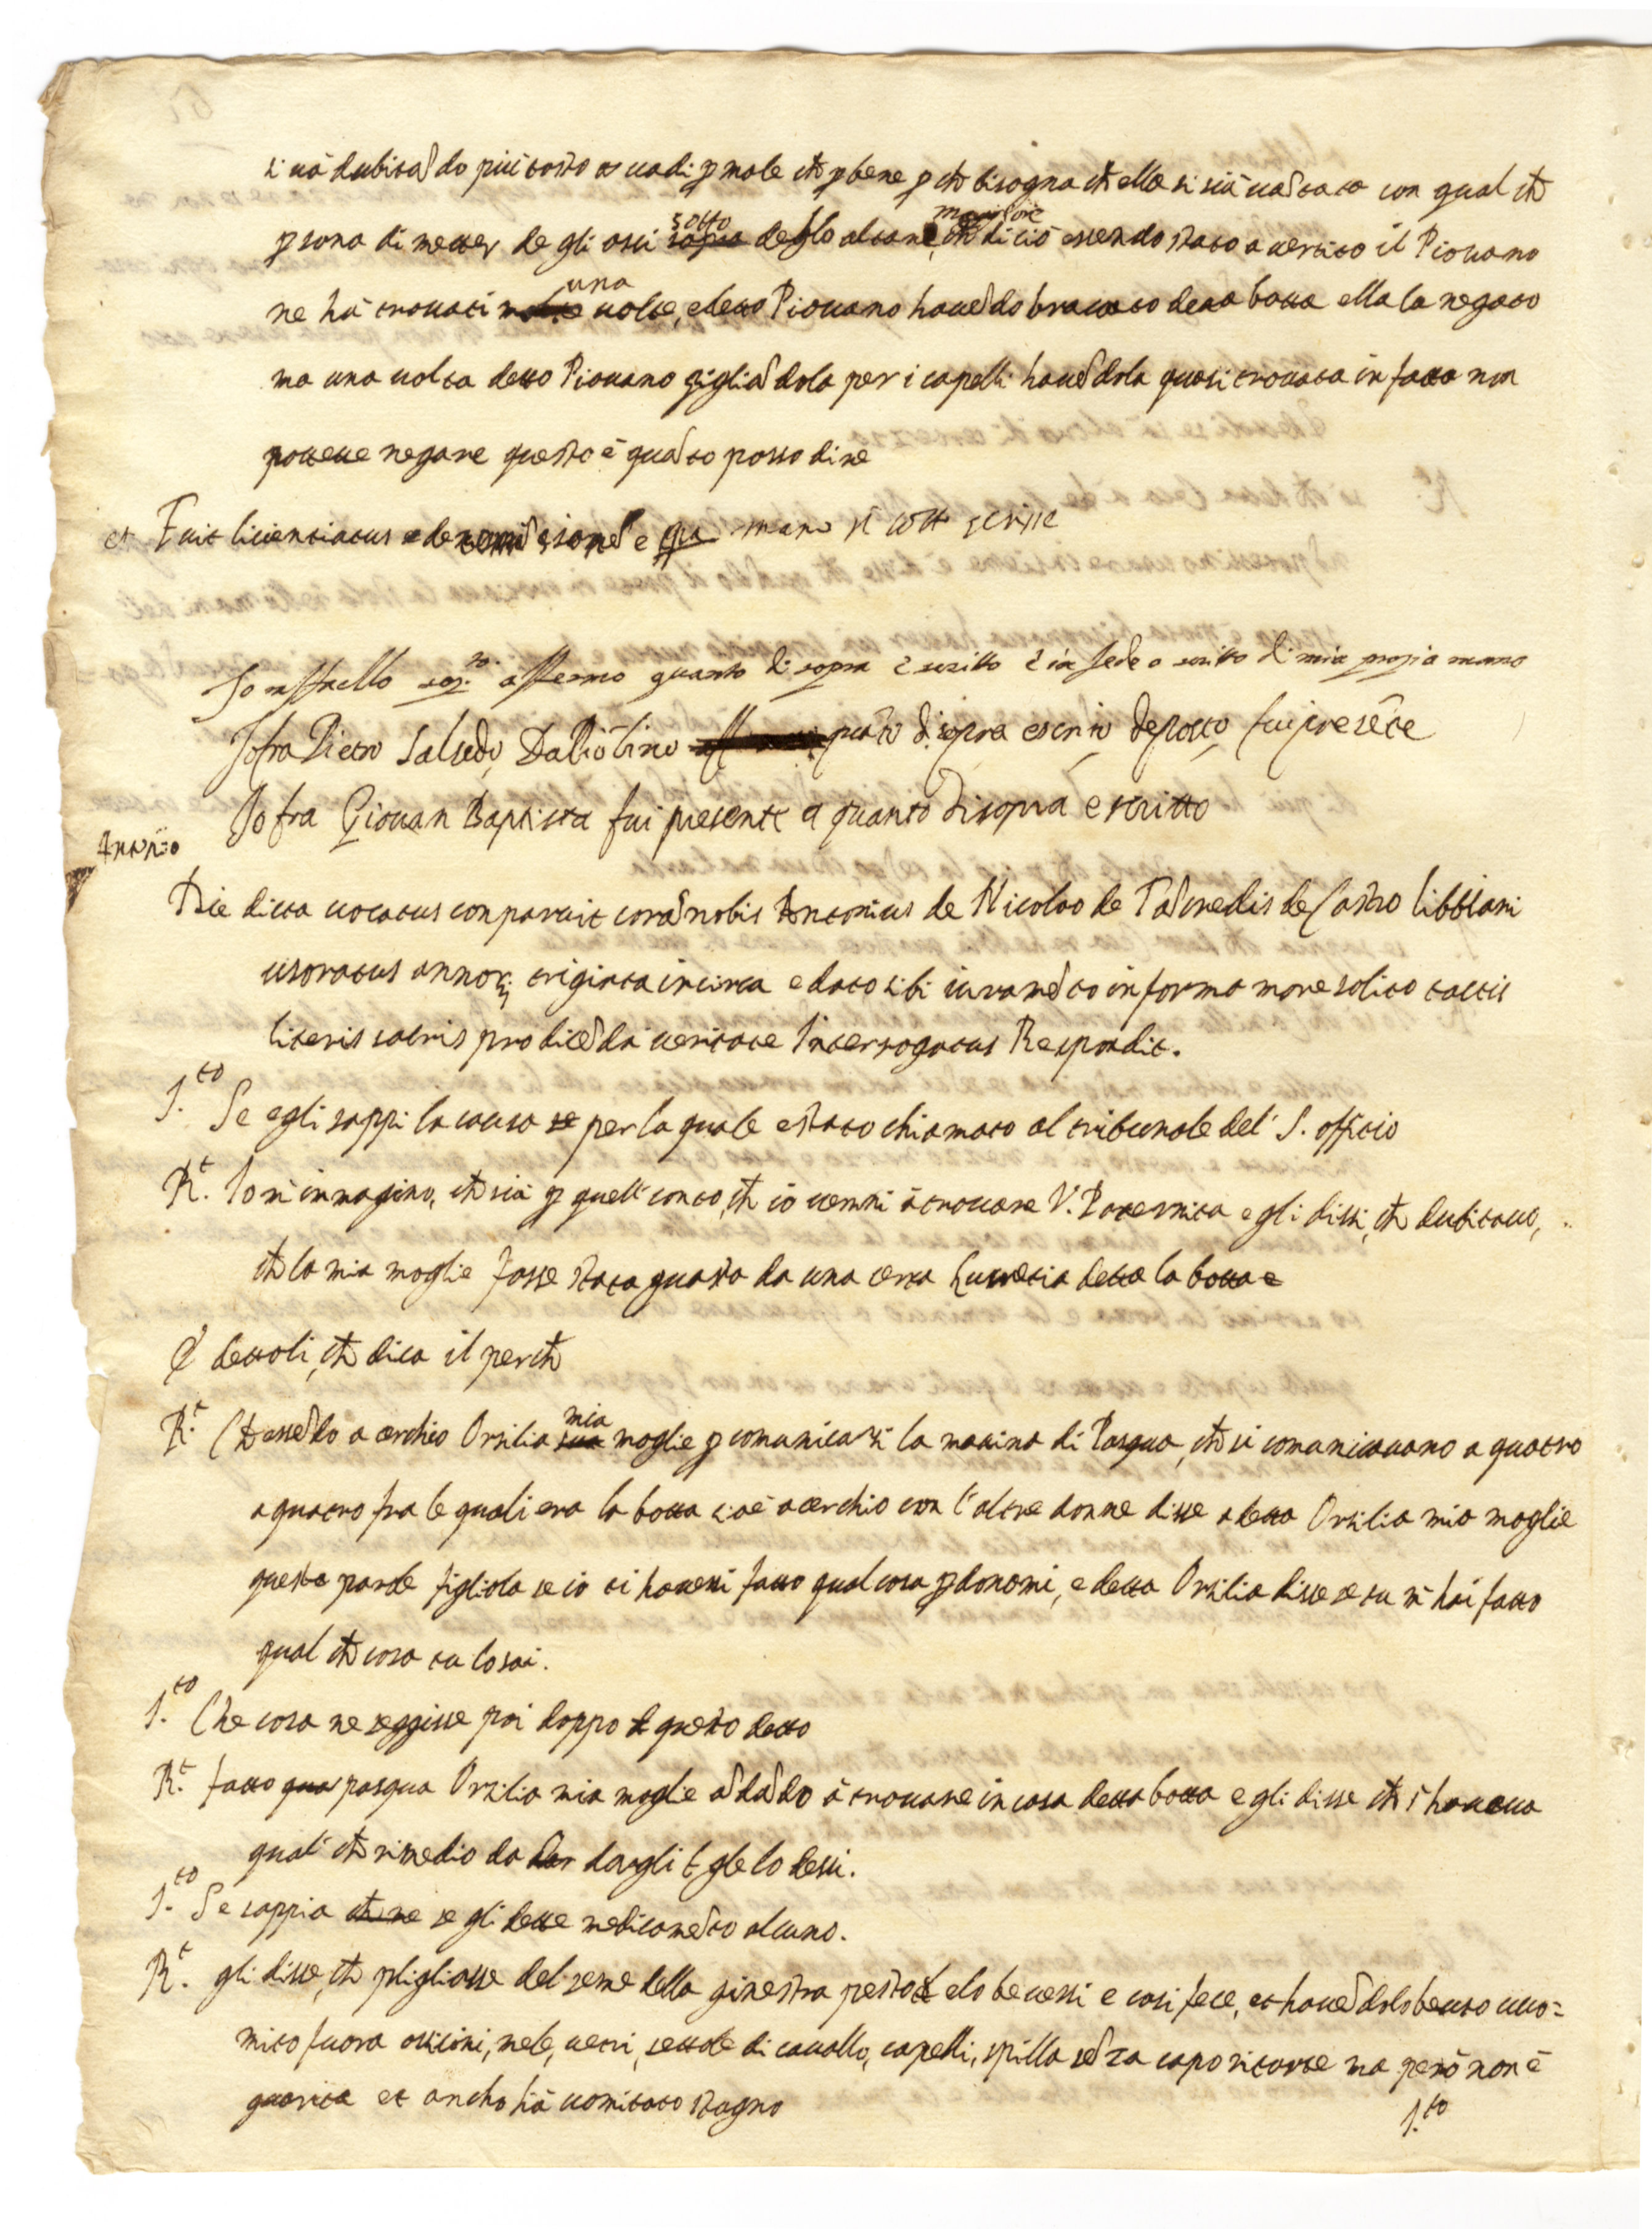 si uà dubitando piu tosto ci uadi p male ch p bene p ch bisogna ch ella si sia uantata con qual ch
psona di metter de gli ossi sotto sopra dello altare, ch di ciò essendo stato auertito il Piouano
ne hà trouati una uolte, e detto Piouano hauendo brauato detta botta ella la negato
ma una uolta detto Piouano pigliandola per i capelli hauendola quasi trouata in fatto non
potette negare questo è quanto posso dire
et Fuit licentiatus e de mano si sott scrisse
Io raffaello sop.to affermo quanto di sopra è scritto è in fede o scritto di mia propia mano
Io fra Pietro Salsedo quāto disopra escrito deposto fui presēte
Io fra Giouan Baptista fui presente a quanto disopra e scritto
Antonio
Die dicta uocatus conparuit coram nobis Antonius de Nicolao de Tancredis de Castro Libbiani
usoratus annor. triginta incirca e dato sibi iuramento in forma more solito tactis
literis sacris pro dicenda ueritate Interrogatus Respondit.
I.to Se egli sappi la causa se per la quale e stato chiamato al tribunale del' S. offitio
R.t Io m' immagino, ch sia p quell conto, ch io uenni à trouare V. Paternita e gli dissi, ch dubitauo,
ch la mia moglie fosse stata guasta da una certa Lucretia detta la botta e
E dettoli, ch dica il perch
R.t Ch essendo a cerchio Orsilia mia sua moglie p comunicarsi la matina di Pasqua, ch si comunicauano a quatro
a quatro fra le quali era la botta cioè a cerchio con l'altre donne disse a detta Orsilia mia moglie
queste parole figliola se io ti hauessi fatto qual cosa pdonami, e detta Orsilia disse se tu m' hai fatto
qual ch cosa tu lo sai.
I.to Che cosa ne seggisse poi doppo di questo detto
R.t fatto qua pasqua Orsilia mia moglie andando à trouare in casa detta botta e gli disse ch s' haueua
qual ch rimedio da dar dargli e gle lo dessi.
I.to Se sappia ch ne se gli dette medicamento alcuno.
R.t gli disse, ch pligliasse del seme della ginestra pesto e lo beuessi e cosi fece, et hauendolo beuto uuo=
mito fuora ossicini, mele, uetri, settole di cauallo, capelli, spilla senza capo ritorte ma però non è
guarita et ancho hà uomitato stagno
I.to